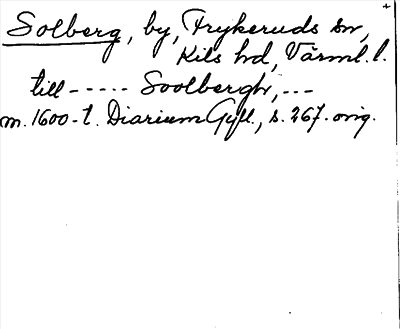 Solberg, by, Frykeruds sn,
Kils hd, Värml. l.
till ----- Soolbergh, ---
m. 1600-t. Diarium Gyll., s. 267. orig.